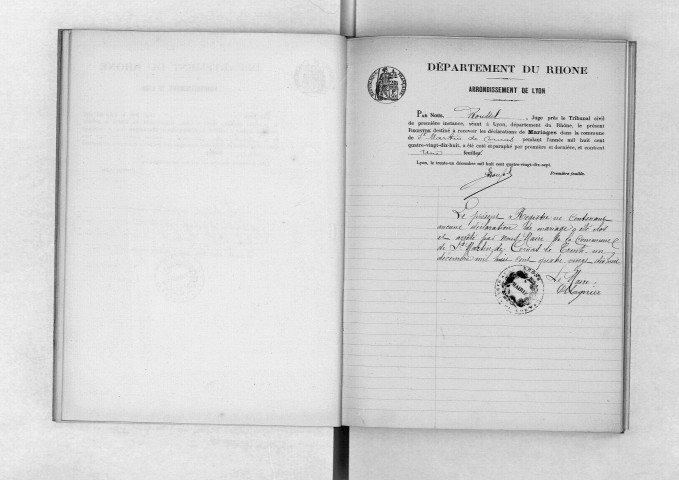 DÉPARTEMENT DU RHONE
ARRONDISSEMENT DE LYON
PAR NOUS, Rousset, Juge près le Tribunal civil
de première instance, séant à Lyon, département du Rhône, le présent
REGISTRE destiné à recevoir les déclarations de Mariages dans la commune
de St Martin de Cornas pendant l'année mil huit cent
quatre-vingt-dix-huit, a été coté et paraphé par première et dernière, et contient
feuillet
Lyon, le trente-un décembre mil huit cent quatre-vingt-dix-sept.
Première feuille.
Le présent Registre ne contenant
aucune déclaration de mariage a été clos
et arrêté par nous Maire de la Commune
de St Martin de Cornas le trente un
décembre mil huit cent quatre vingt dix huit
Le Maire
MAIRIE